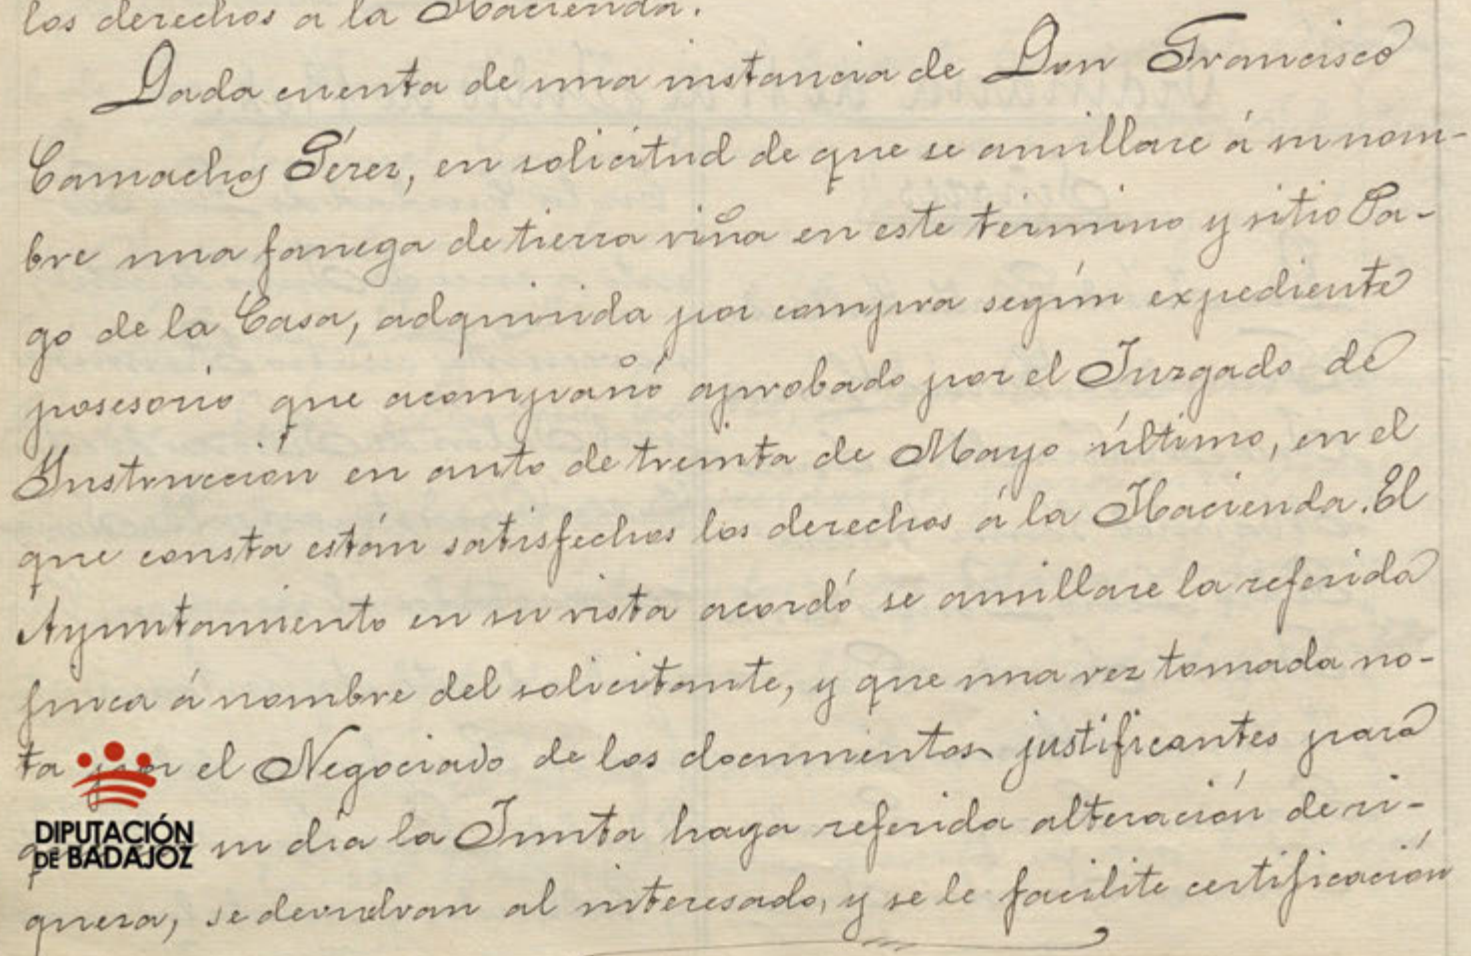 los derechos a la Hacienda.
Dada cuenta de una instancia de Don Francisco
Camachos Pérez, en solicitud de que se amillare á su nom-
bre una fanega de tierra viña en este término y sitio Pa-
go de la Casa, adquirida por compra según expediente
posesorio que acompañó aprobado por el Juzgado de
Instrucción en auto de treinta de Mayo último, en el
que consta están satisfechos los derechos á la Hacienda. El
Ayuntamiento en su vista acordó se amillare la referida
finca á nombre del solicitante, y que una vez tomada no-
ta por el Negociado de los documentos justificantes para
su día la Junta haga referida alteración de ri-
DIPUTACIÓN
DE BADAJOZ
queza, se devuelvan al interesado, y se le facilite certificación